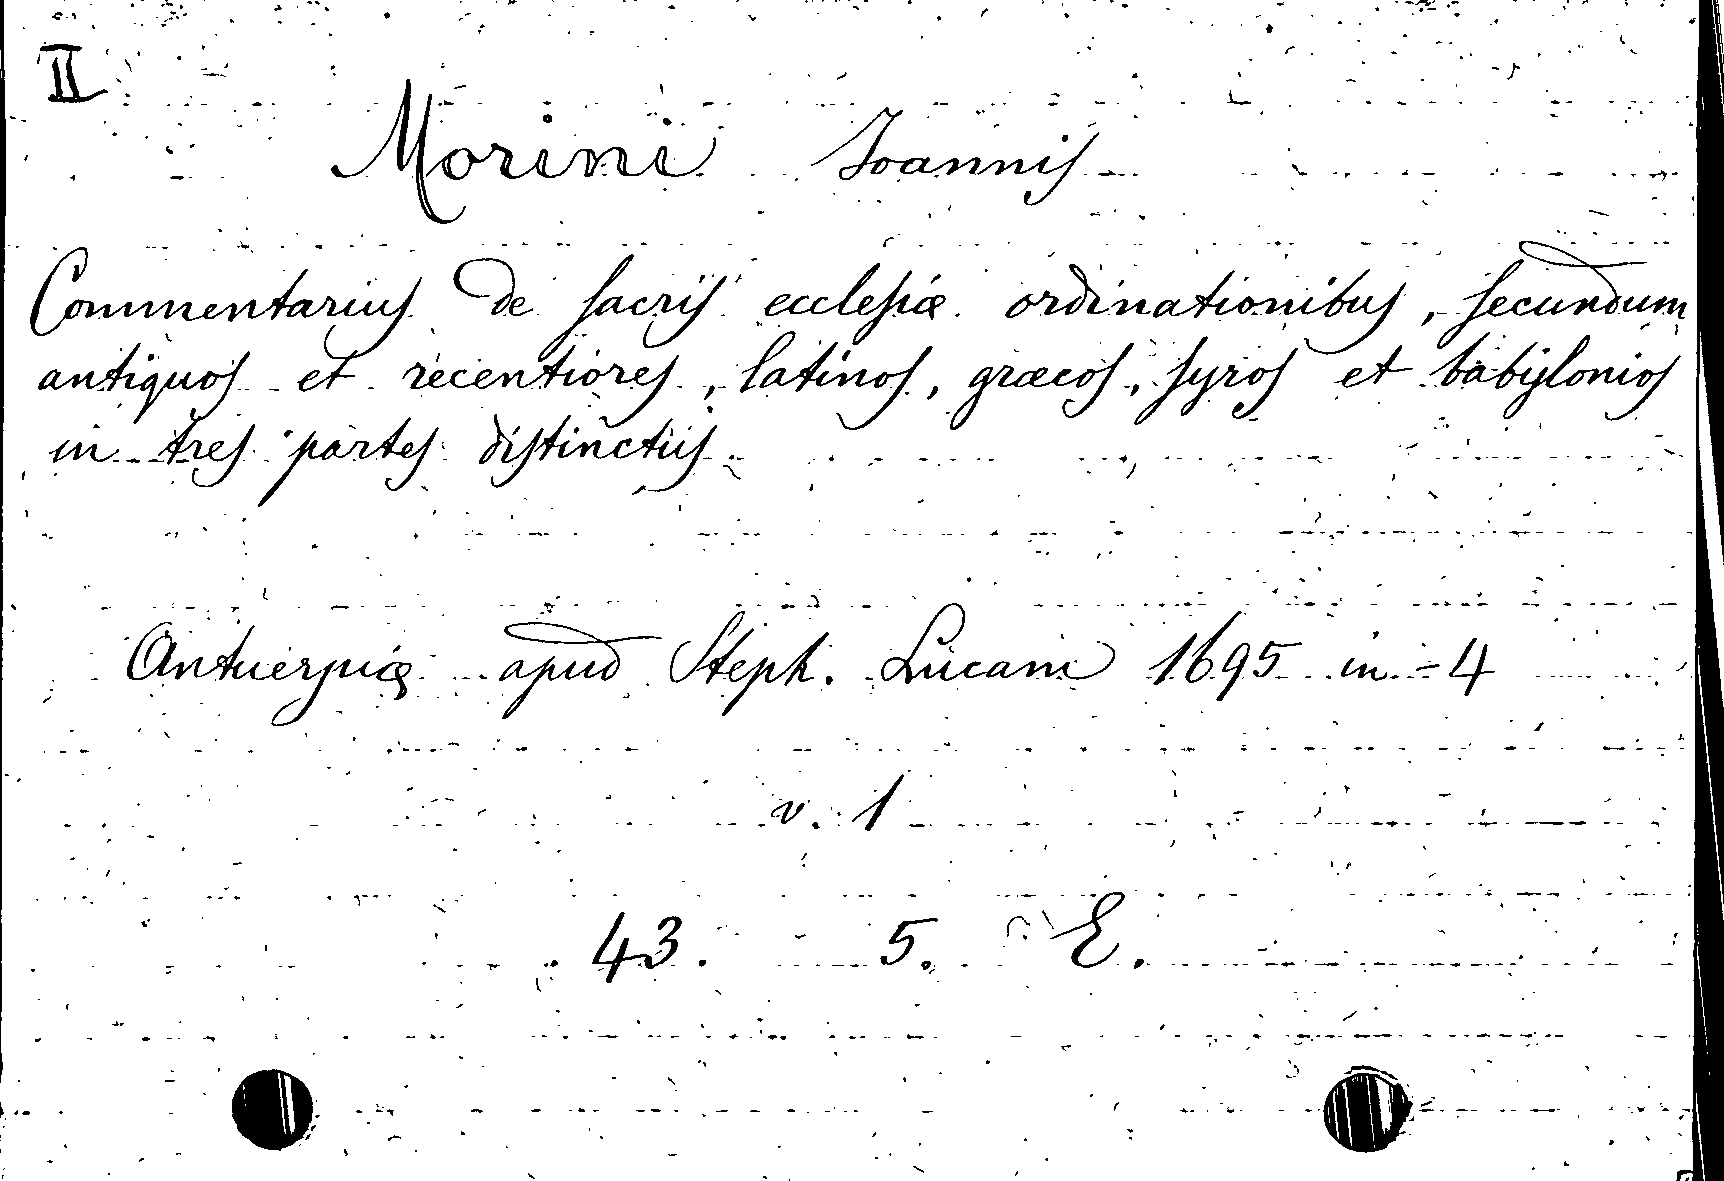 II
Morini Joannis
Commentarius de sacris ecclesiæ ordinationibus, secundum
antiquos et recentiores, latinos, græcos, syros et babylonios
in tres partes distinctus
Antuerpiæ apud Steph. Lucam 1695 in-4
v. 1
43. 5. E.